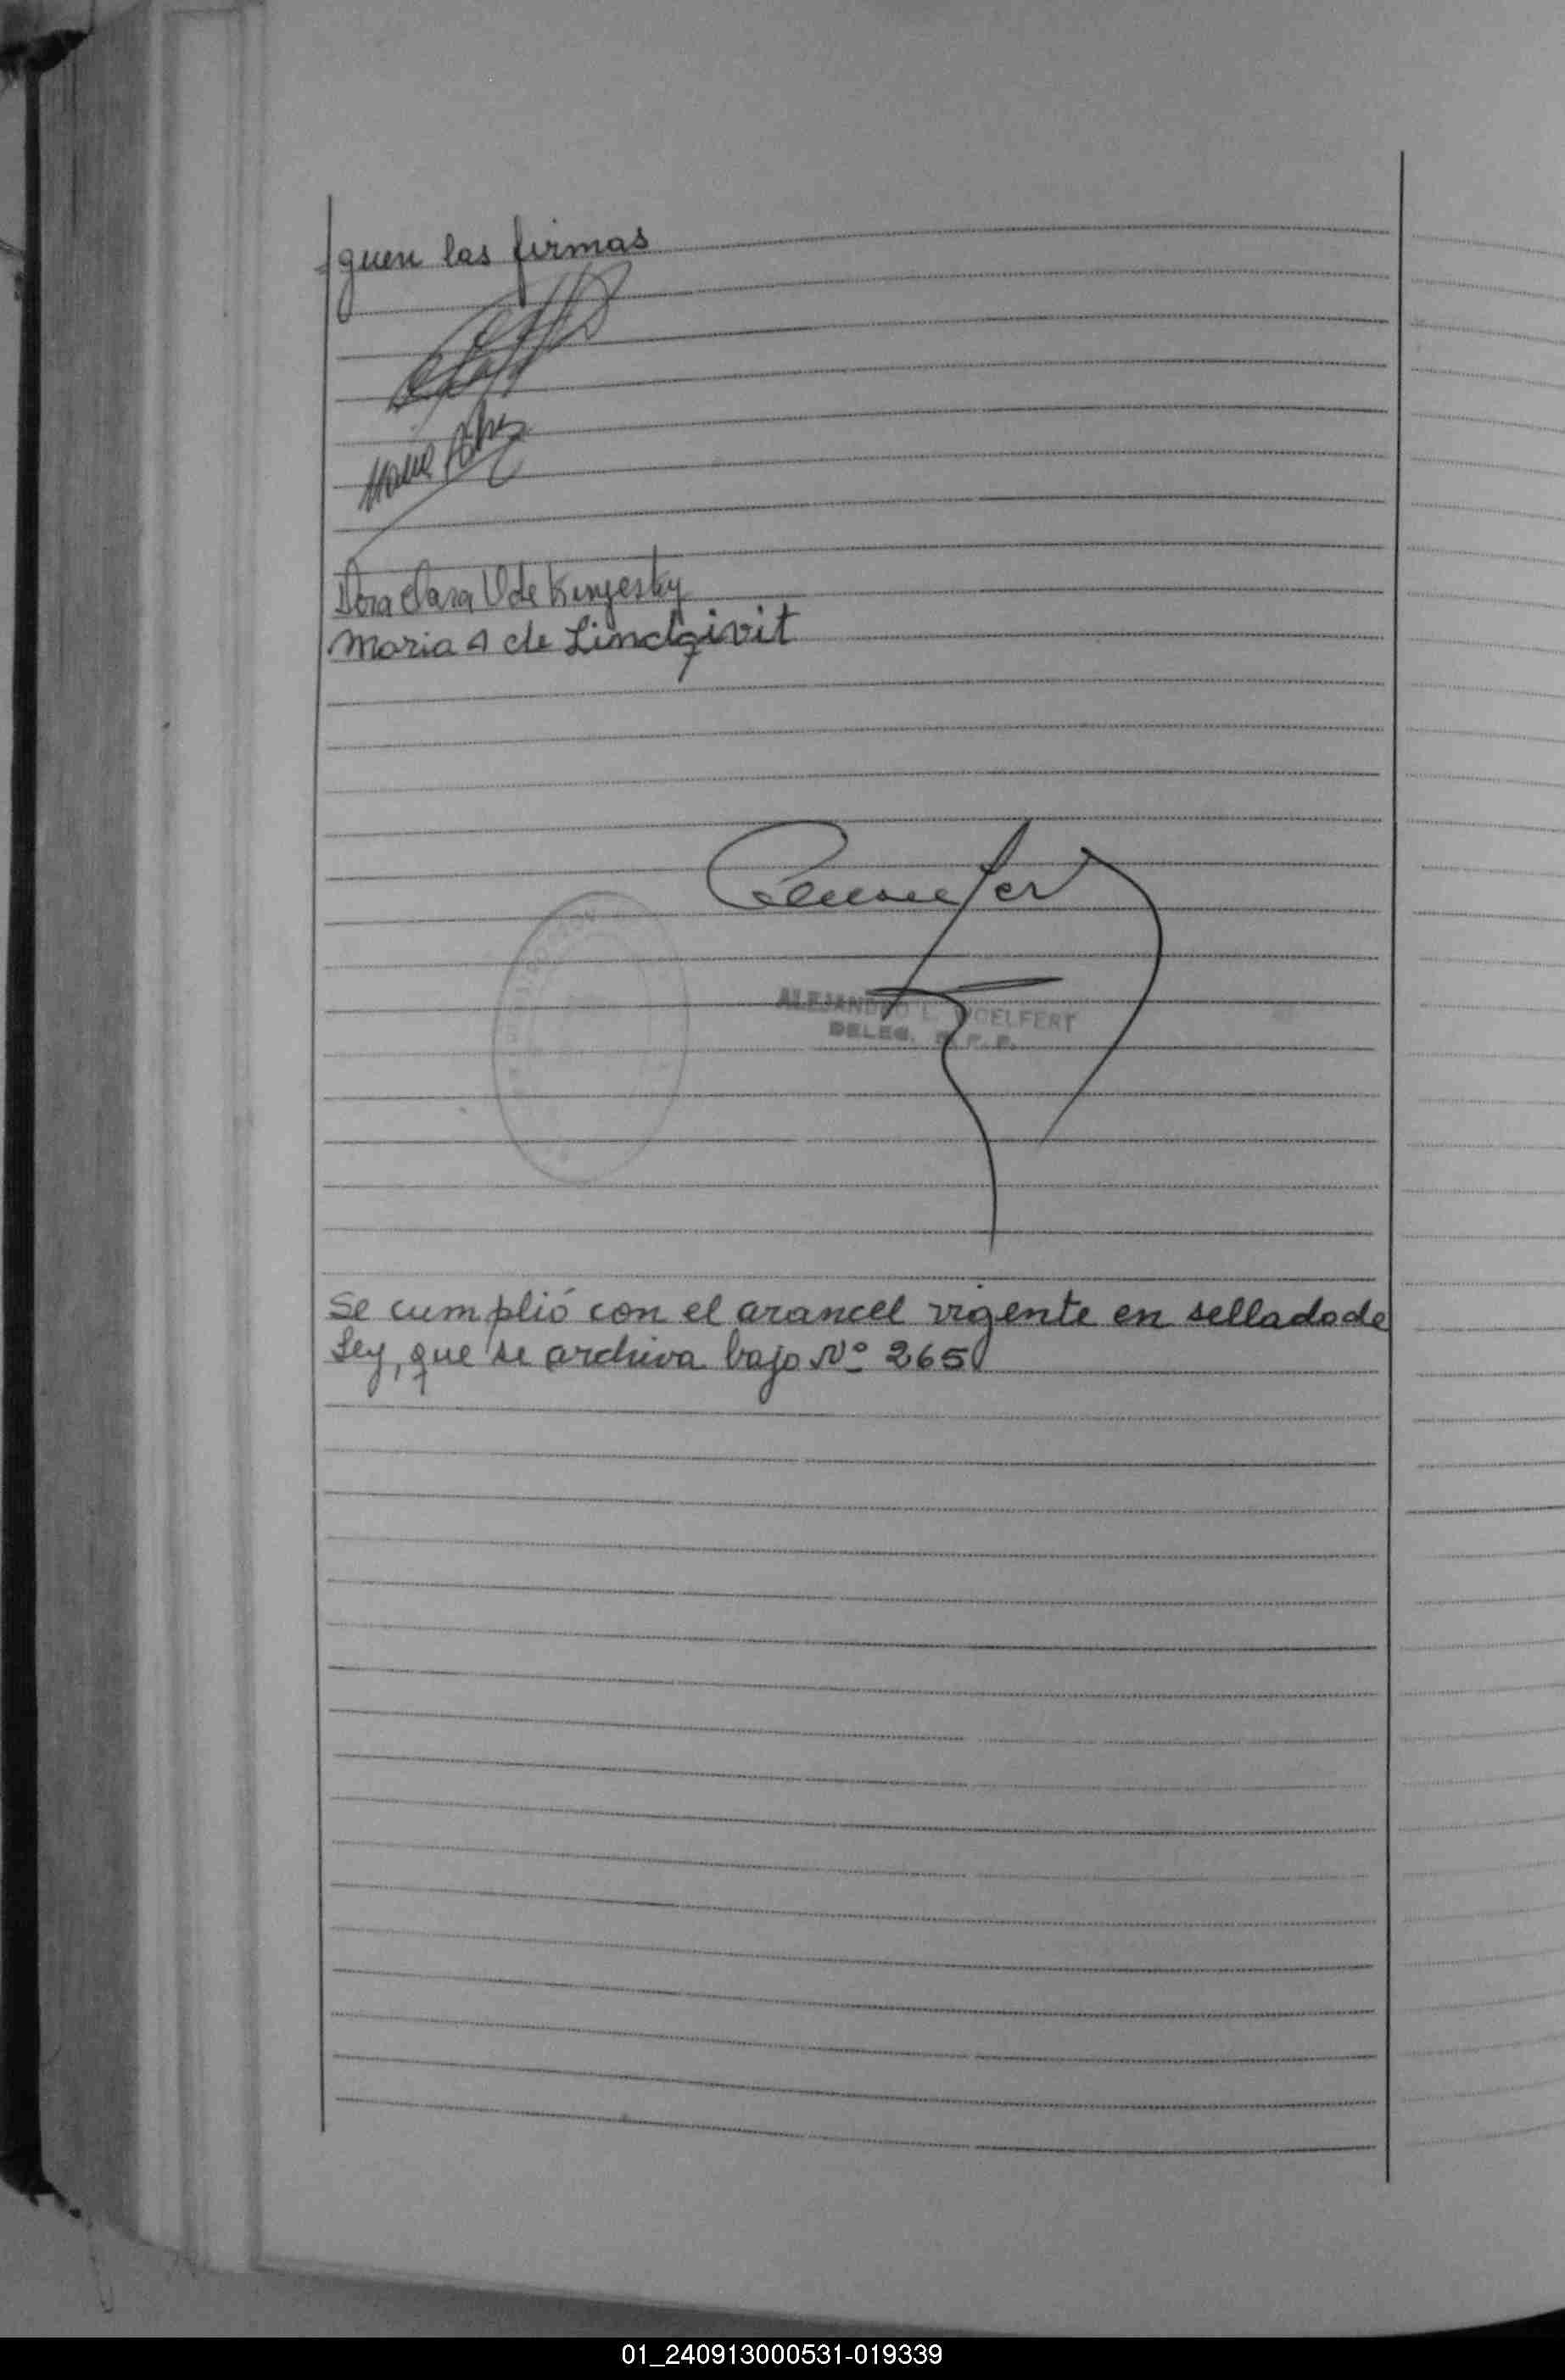 guen las firmas
Dora Clara V de Kinjesky
Maria A de Lindqivit
ALEJANDRO L. WOELFERT
DELEG. R.P.P.
Se cumplió con el arancel vigente en sellado de
Ley, que se archiva bajo Nº 265
01_240913000531-019339